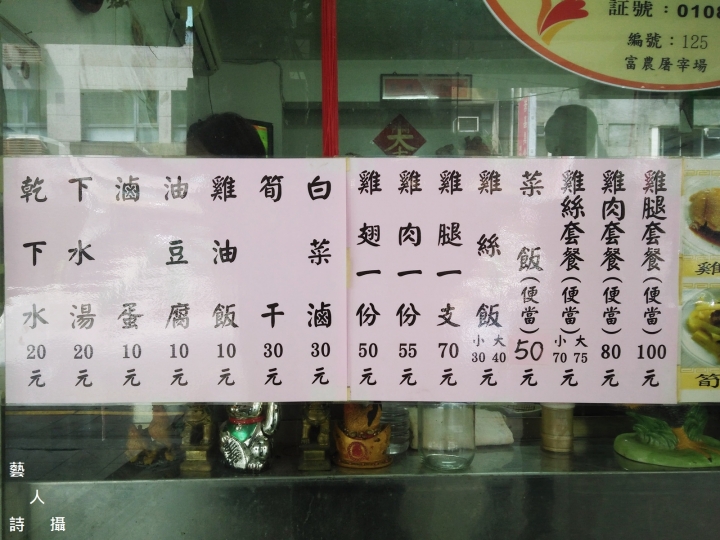 証號：0108
編號：125
富農屠宰場
雞腿套餐(便當)100元
雞肉套餐(便當)80元
雞絲套餐(便當)大75小70元
菜飯(便當)50元
雞絲飯大40小30元
雞腿一支70元
雞肉一份55元
雞翅一份50元
白菜滷30元
筍干30元
雞油飯10元
油豆腐10元
滷蛋10元
下水湯20元
乾下水20元
雞
筍
藝人詩攝